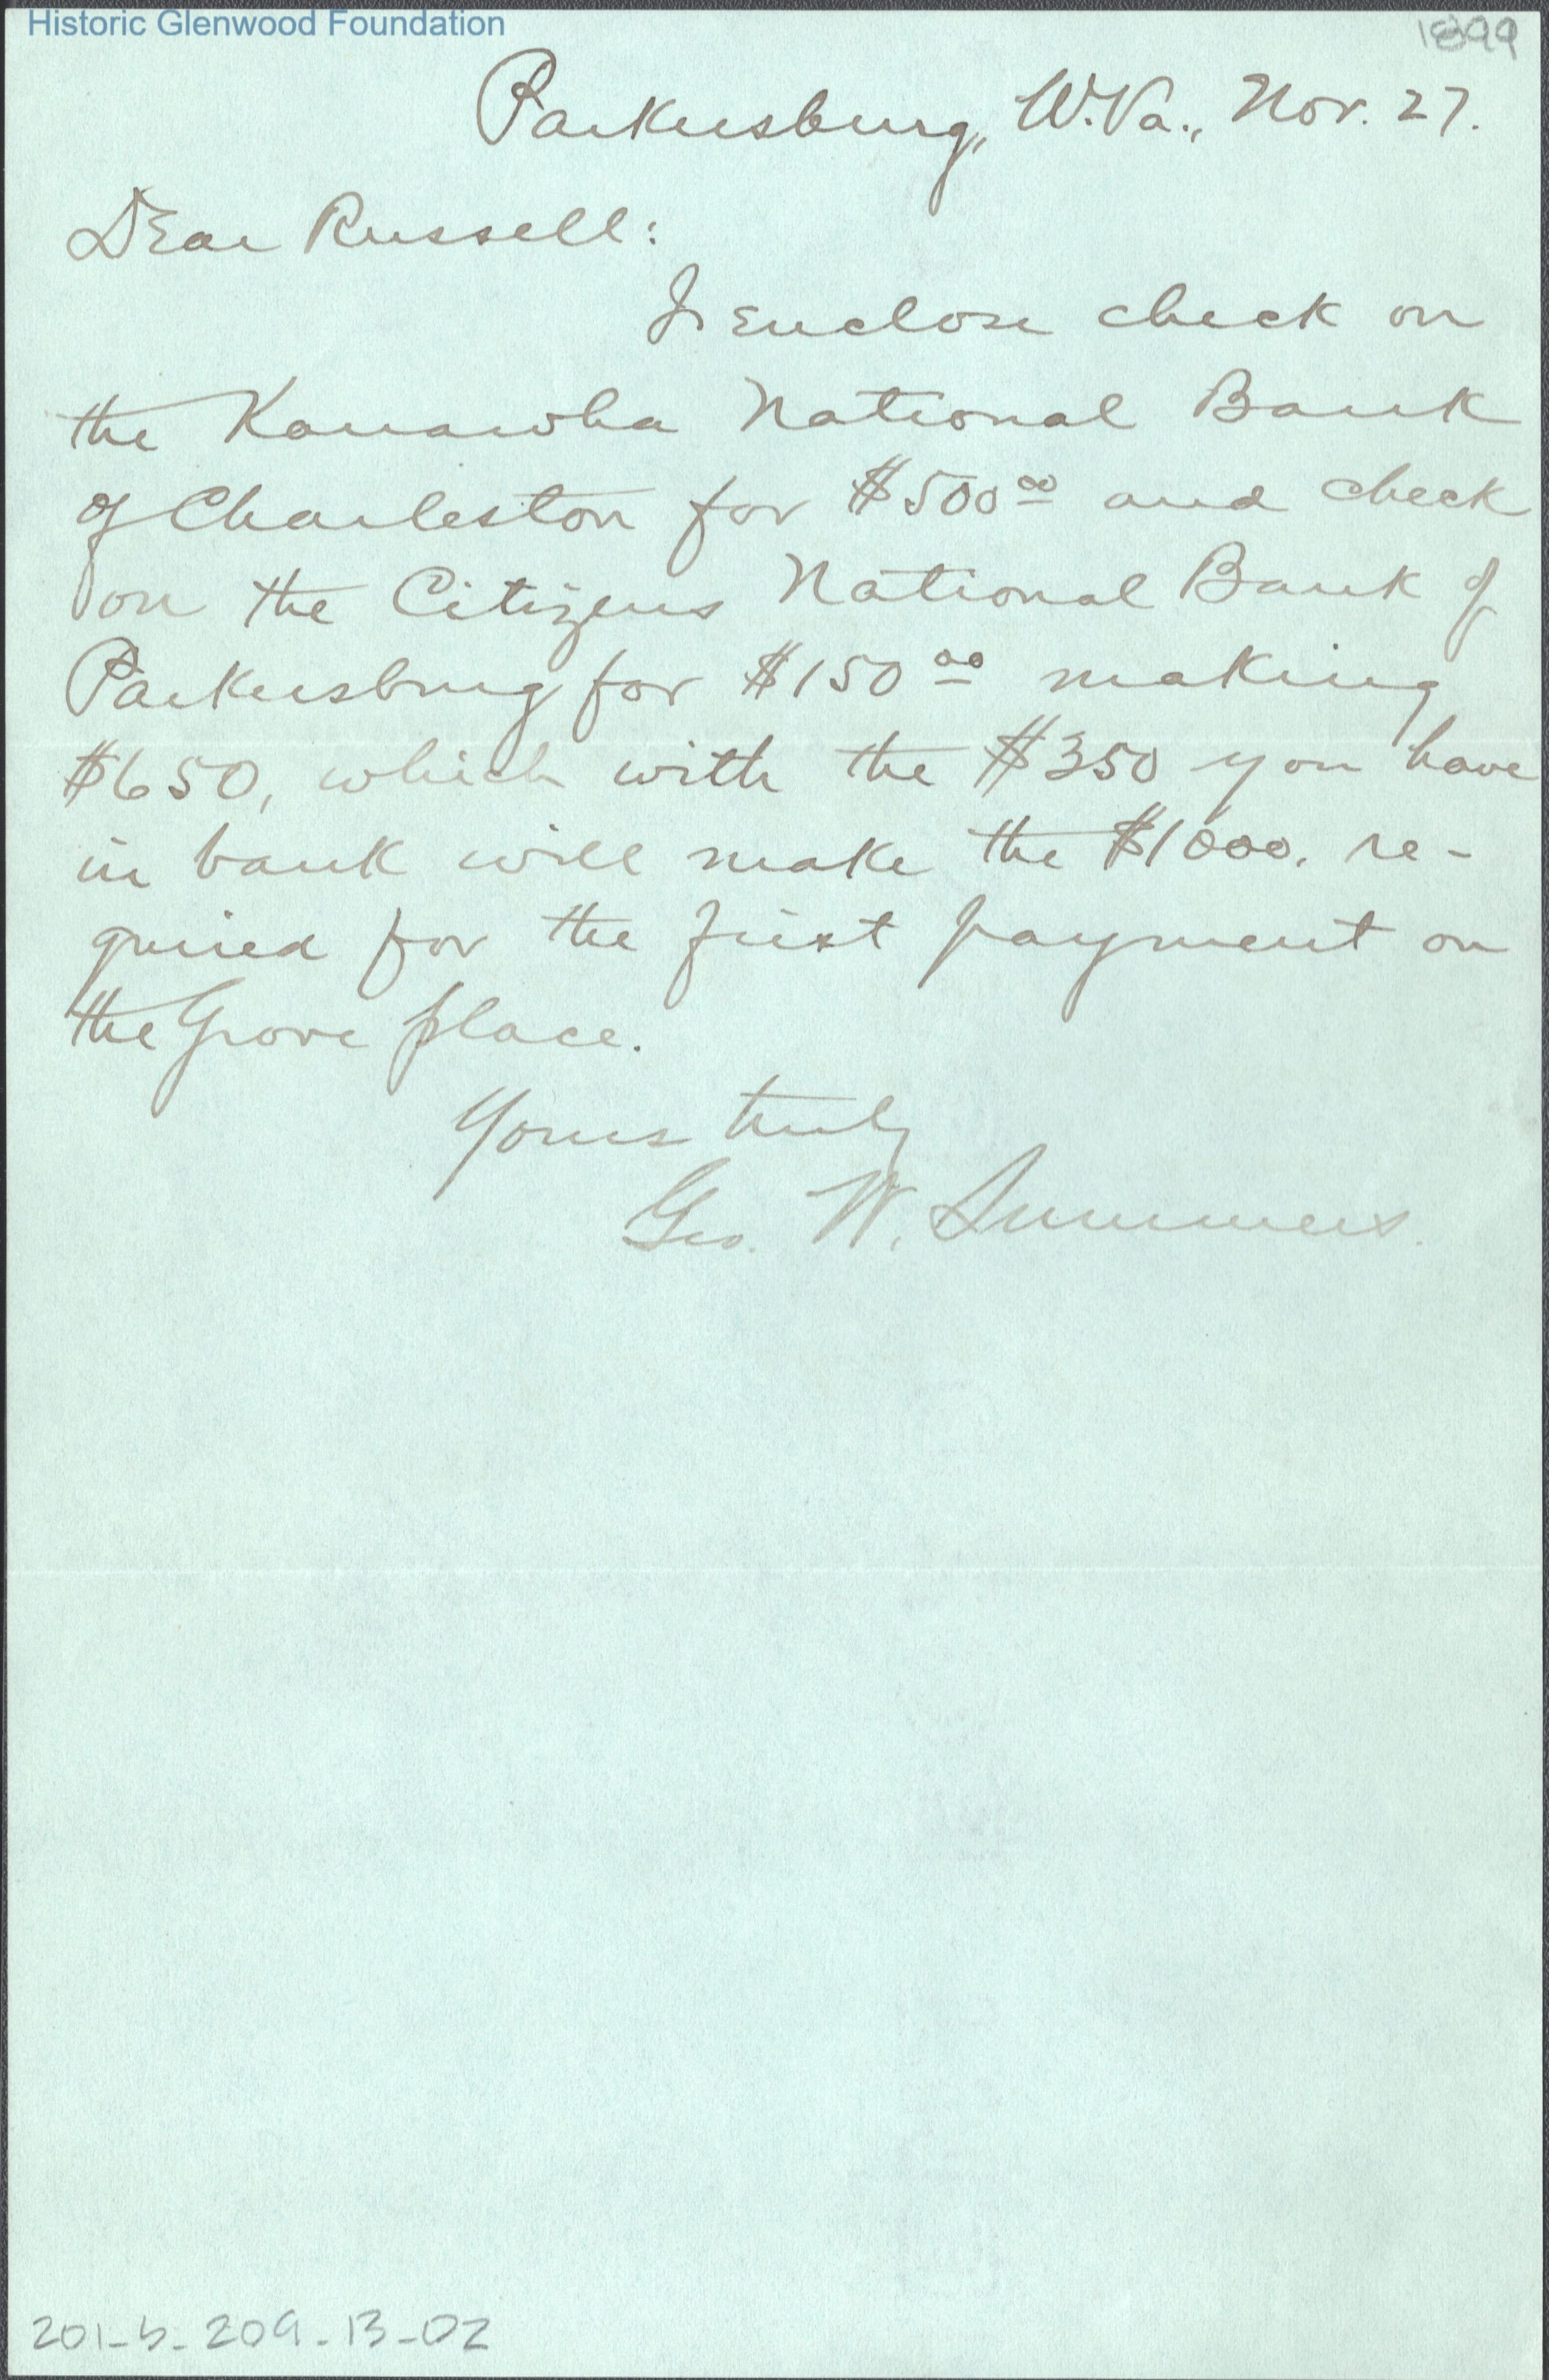 Historic Glenwood Foundation
1899
Parkersburg, W.Va., Nov. 27.
Dear Russell:
I enclose check on
the Kanawha National Bank
of Charleston for $500 00 and check
on the Citizens National Bank of
Parkersburg for $150 00 making
$650, which with the $350 you have
in bank will make the $1000. re-
quired for the first payment on
the Grove place.
Yours truly
Geo. W. Summers.
201-b-209-13-02